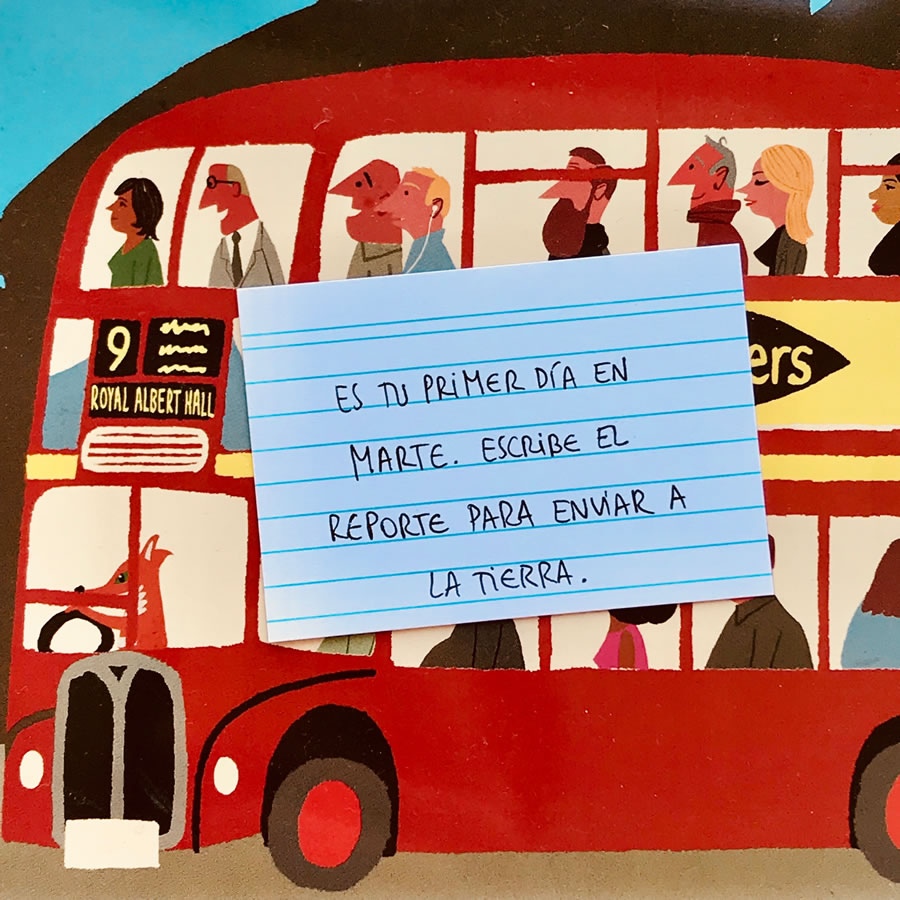 9
ROYAL ALBERT HALL
ers
ES TU PRIMER DÍA EN
MARTE. ESCRIBE EL
REPORTE PARA ENVIAR A
LA TIERRA.